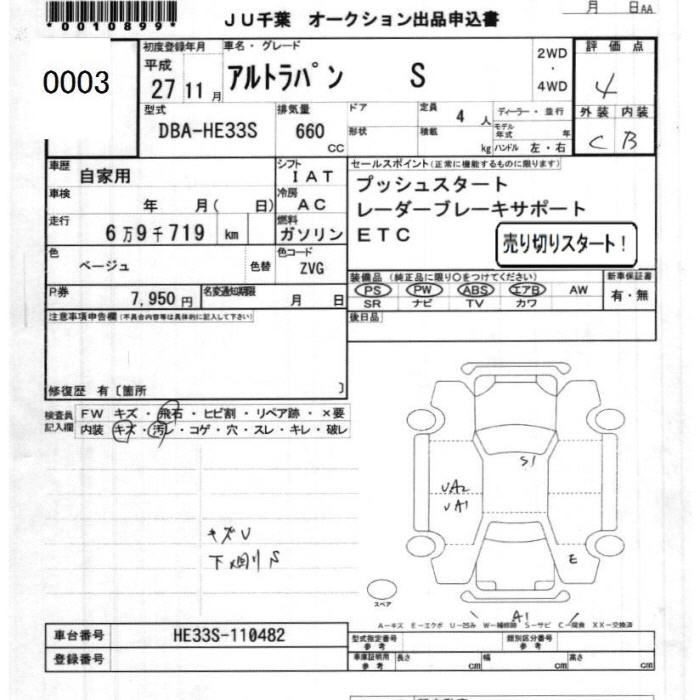 月 日 AA
*0010899*
JU千葉 オークション出品申込書
0003
初度登録年月 車名・グレード 2WD・4WD 評価点
平成 27 11月 アルトラパン S 4
型式 排気量 ドア 定員 4人 ディーラー・並行 外装 内装
DBA-HE33S 660 CC 形状 積載 kg モデル年式 年 ハンドル 左・右 C B
車歴 自家用 シフト IAT セールスポイント(正常に機能するものに限ります)
車検 年 月( 日) 冷房 AC プッシュスタート
走行 6万9千719 km 燃料 ガソリン レーダーブレーキサポート
ETC
売り切りスタート!
色 ベージュ 色替 色コード ZVG
装備品(純正品に限り○をつけてください) 新車保証書
PS PW ABS エアB AW 有・無
SR ナビ TV カワ
P券 7,950円 名変通知期限 月 日
後日品
注意事項申告欄(不具合内容等は具体的に記入して下さい)
修復歴 有〔箇所 〕
検査員記入欄 FW キズ・飛石・ヒビ割・リペア跡・×要
内装 キズ・汚レ・コゲ・穴・スレ・キレ・破レ
S1
UA2
UA1
キズU
下廻りS
E
スペア
A1
A-キズ E-エクボ U-凹み W-補修跡 S-サビ C-腐食 XX-交換済
車台番号 HE33S-110482
型式指定番号 参考 類別区分番号 参考
登録番号
車庫証明用 参考 長さ cm 幅 cm 高さ cm